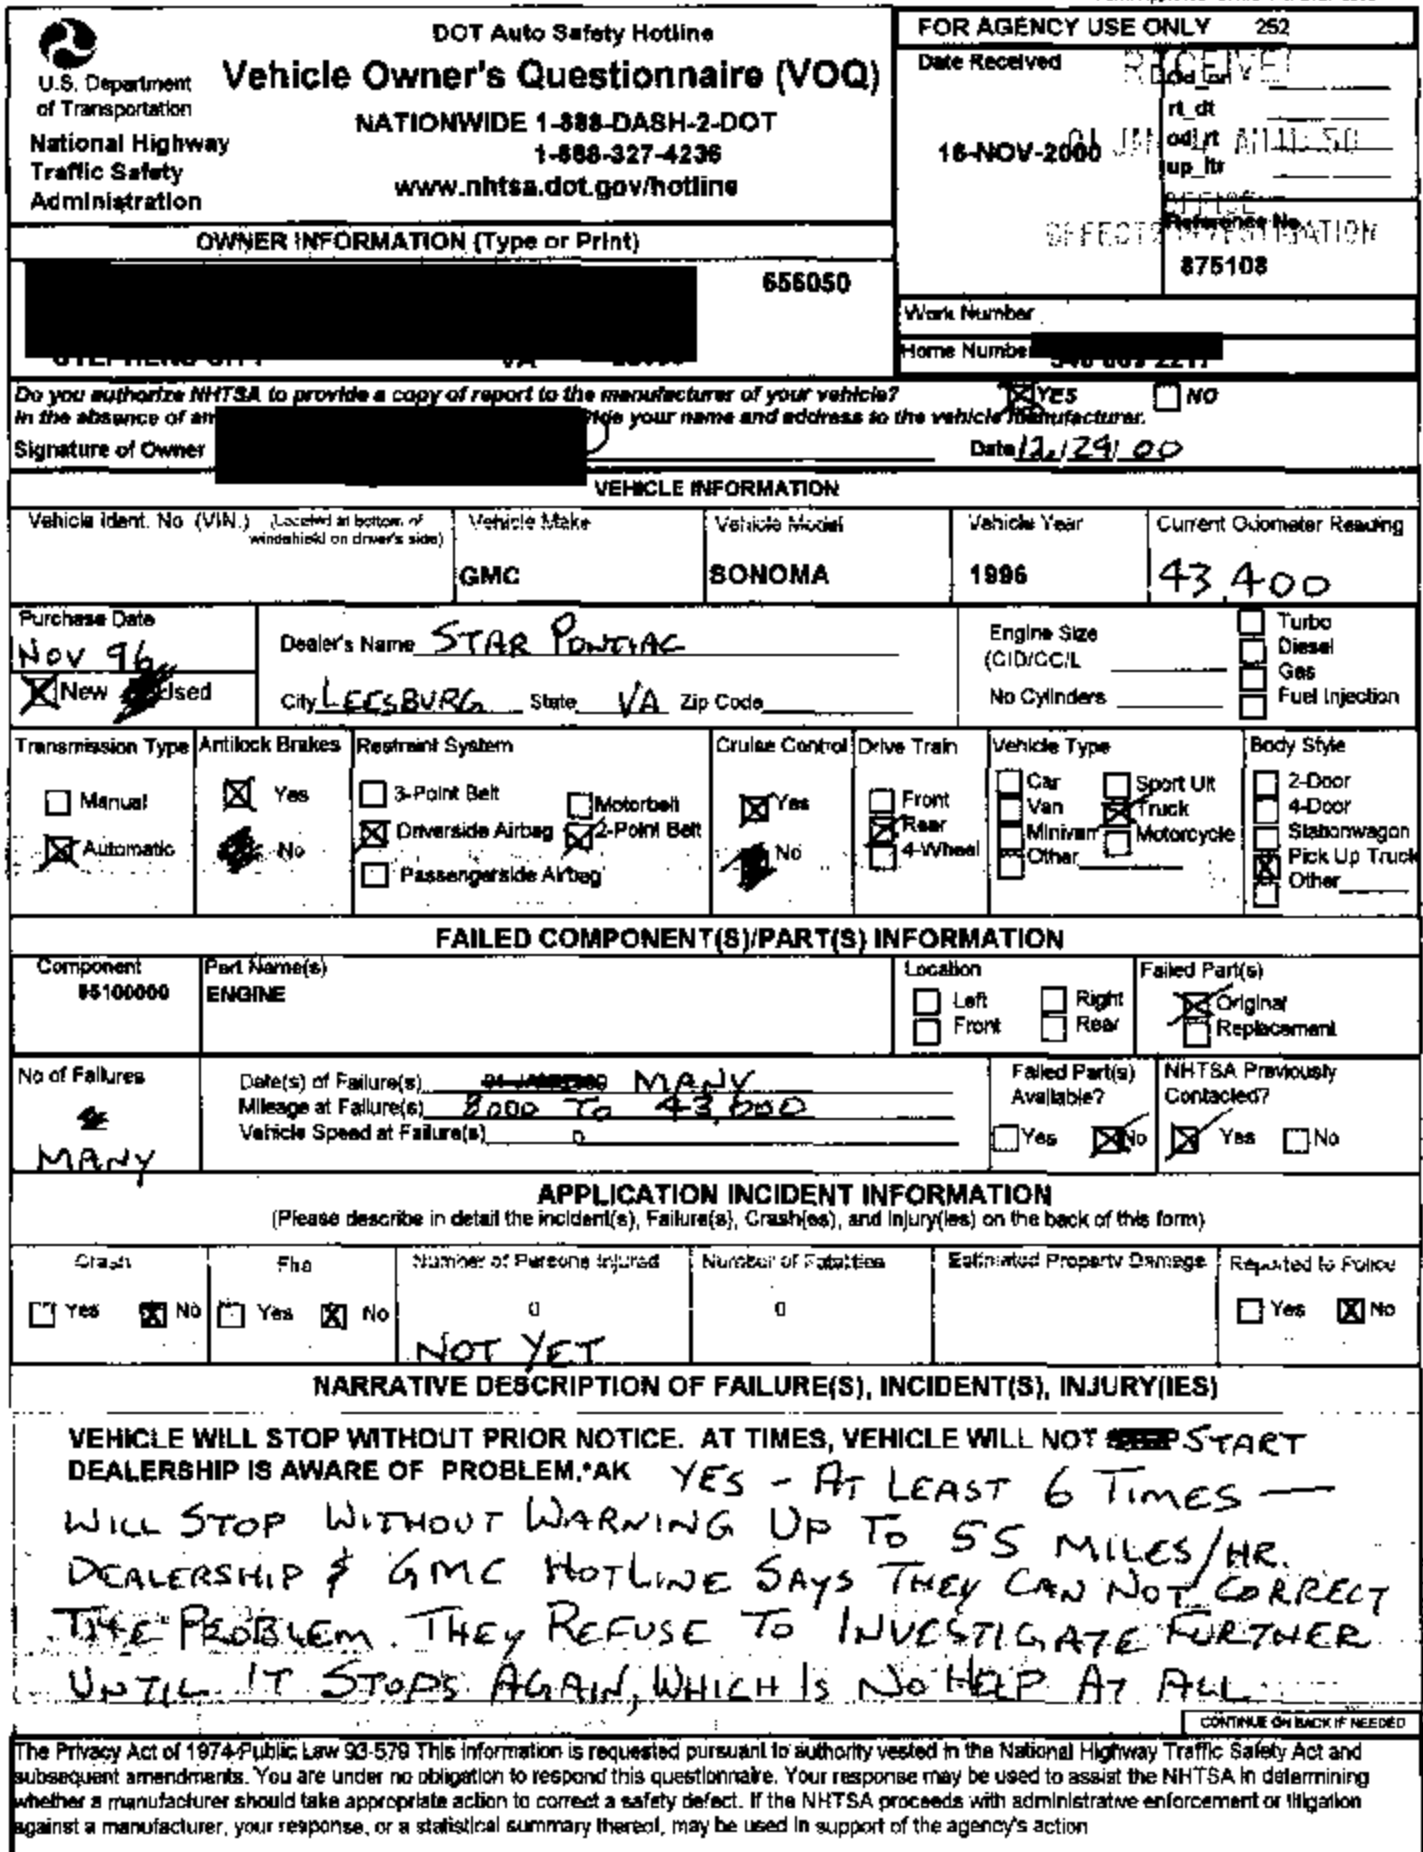 DOT Auto Safety Hotline
Vehicle Owner's Questionnaire (VOQ)
NATIONWIDE 1-888-DASH-2-DOT
1-888-327-4236
www.nhtsa.dot.gov/hotline
U.S. Department
of Transportation
National Highway
Traffic Safety
Administration
FOR AGENCY USE ONLY 252
Date Received
RECEIVE
rt_dt
16-NOV-2000
od_rt
up_ltr
OFFICE
DEFECTS INVESTIGATION
Reference No.
875108
OWNER INFORMATION (Type or Print)
656050
VA
Work Number
Home Number
Do you authorize NHTSA to provide a copy of report to the manufacturer of your vehicle? YES NO
In the absence of an your name and address to the vehicle manufacturer.
Signature of Owner Date 12/29/00
VEHICLE INFORMATION
Vehicle Ident. No. (VIN.) (Located at bottom of
windshield on driver's side)
Vehicle Make
GMC
Vehicle Model
SONOMA
Vehicle Year
1996
Current Odometer Reading
43,400
Purchase Date
NOV 96
New Used
Dealer's Name STAR PONTIAC
City LEESBURG State VA Zip Code
Engine Size
(CID/CC/L
No Cylinders
Turbo
Diesel
Gas
Fuel Injection
Transmission Type
Manual
Automatic
Antilock Brakes
Yes
No
Restraint System
3-Point Belt
Motorbelt
Driverside Airbag
2-Point Belt
Passengerside Airbag
Cruise Control
Yes
No
Drive Train
Front
Rear
4-Wheel
Vehicle Type
Car
Van
Minivan
Other
Sport Ult
Truck
Motorcycle
Body Style
2-Door
4-Door
Stationwagon
Pick Up Truck
Other
FAILED COMPONENT(S)/PART(S) INFORMATION
Component
Part Name(s)
ENGINE
Location
Left
Front
Right
Rear
Failed Part(s)
Original
Replacement
No of Failures
MANY
Date(s) of Failure(s) MANY
Mileage at Failure(s) 8000 TO 43,600
Vehicle Speed at Failure(s) 0
Failed Part(s)
Available?
Yes No
NHTSA Previously
Contacted?
Yes No
APPLICATION INCIDENT INFORMATION
(Please describe in detail the incident(s), Failure(s), Crash(es), and Injury(ies) on the back of this form)
Crash
Yes No
Fire
Yes No
Number of Persons Injured
0
NOT YET
Number of Fatalities
0
Estimated Property Damage
Reported to Police
Yes No
NARRATIVE DESCRIPTION OF FAILURE(S), INCIDENT(S), INJURY(IES)
VEHICLE WILL STOP WITHOUT PRIOR NOTICE. AT TIMES, VEHICLE WILL NOT START
DEALERSHIP IS AWARE OF PROBLEM.*AK YES - AT LEAST 6 TIMES —
WILL STOP WITHOUT WARNING UP TO 55 MILES/HR.
DEALERSHIP & GMC HOTLINE SAYS THEY CAN NOT CORRECT
THE PROBLEM. THEY REFUSE TO INVESTIGATE FURTHER
UNTIL IT STOPS AGAIN, WHICH IS NO HELP AT ALL
CONTINUE ON BACK IF NEEDED
The Privacy Act of 1974-Public Law 93-579 This information is requested pursuant to authority vested in the National Highway Traffic Safety Act and
subsequent amendments. You are under no obligation to respond this questionnaire. Your response may be used to assist the NHTSA in determining
whether a manufacturer should take appropriate action to correct a safety defect. If the NHTSA proceeds with administrative enforcement or litigation
against a manufacturer, your response, or a statistical summary thereof, may be used in support of the agency's action